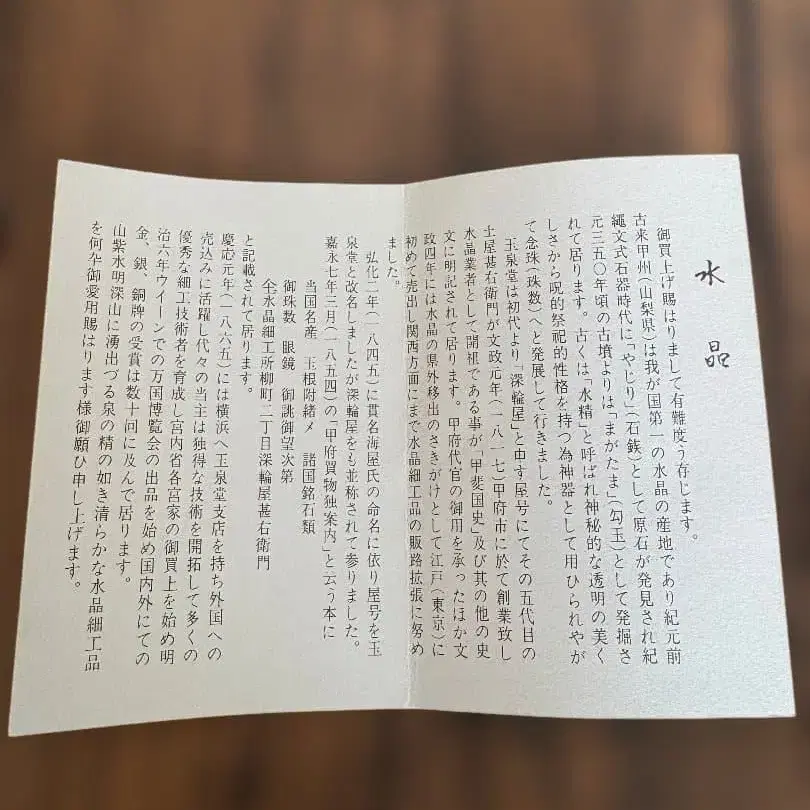 水晶
御買上げ賜はりまして有難度う存じます。
古来甲州（山梨県）は我が国第一の水晶の産地であり紀元前
縄文式石器時代に「やじり」（石鏃）として原石が発見され紀
元三五〇年頃の古墳よりは「まがたま」（勾玉）として発掘さ
れて居ります。古くは「水精」と呼ばれ神秘的な透明の美く
しさから呪的祭祀的性格を持つ為神器として用ひられやが
て念珠（珠数）へと発展して行きました。
玉泉堂は初代より「深輪屋」と申す屋号にてその五代目の
土屋甚右衛門が文政元年（一八一七）甲府市に於て創業致し
水晶業者として開祖である事が「甲斐国史」及び其の他の史
文に明記されて居ります。甲府代官の御用を承ったほか文
政四年には水晶の県外移出のさきがけとして江戸（東京）に
初めて売出し関西方面にまで水晶細工品の販路拡張に努め
ました。
弘化二年（一八四五）に貫名海屋氏の命名に依り屋号を玉
泉堂と改名しましたが深輪屋をも並称されて参りました。
嘉永七年三月（一八五四）の「甲府買物独案内」と云う本に
当国名産　玉根附緒〆　諸国銘石類
御珠数　眼鏡　御誂御望次第
水晶細工所柳町二丁目深輪屋甚右衛門
と記載されて居ります。
慶応元年（一八六五）には横浜へ玉泉堂支店を持ち外国への
売込みに活躍し代々の当主は独得な技術を開拓して多くの
優秀な細工技術者を育成し宮内省各宮家の御買上を始め明
治六年ウイーンでの万国博覧会の出品を始め国内外にての
金、銀、銅牌の受賞は数十回に及んで居ります。
山紫水明深山に湧出づる泉の精の如き清らかな水晶細工品
を何卆御愛用賜はります様御願ひ申し上げます。